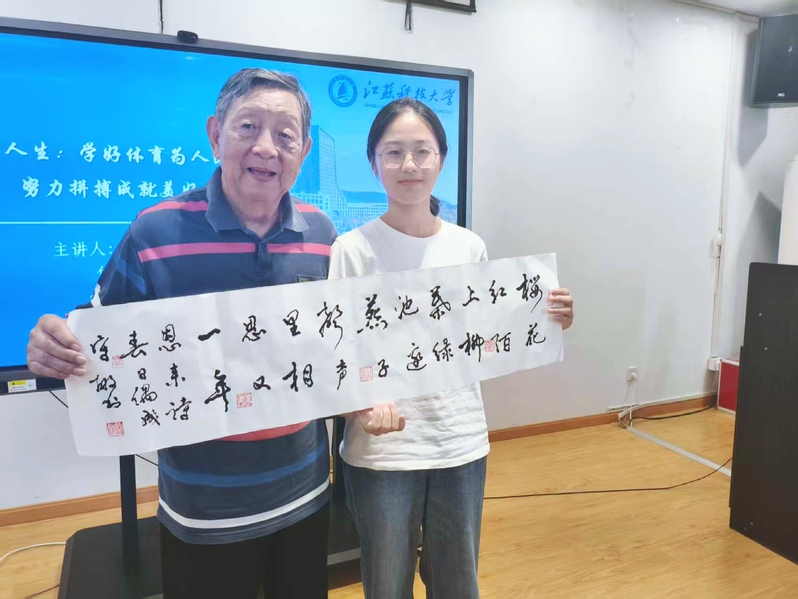 江苏科技大学
人生：学好体育为人
努力拼搏成就美好
主讲人：
樱花
红陌
上柳
葉绿
池邊
燕子
聲声
里相
思又
一年
恩来詩
春日偶成